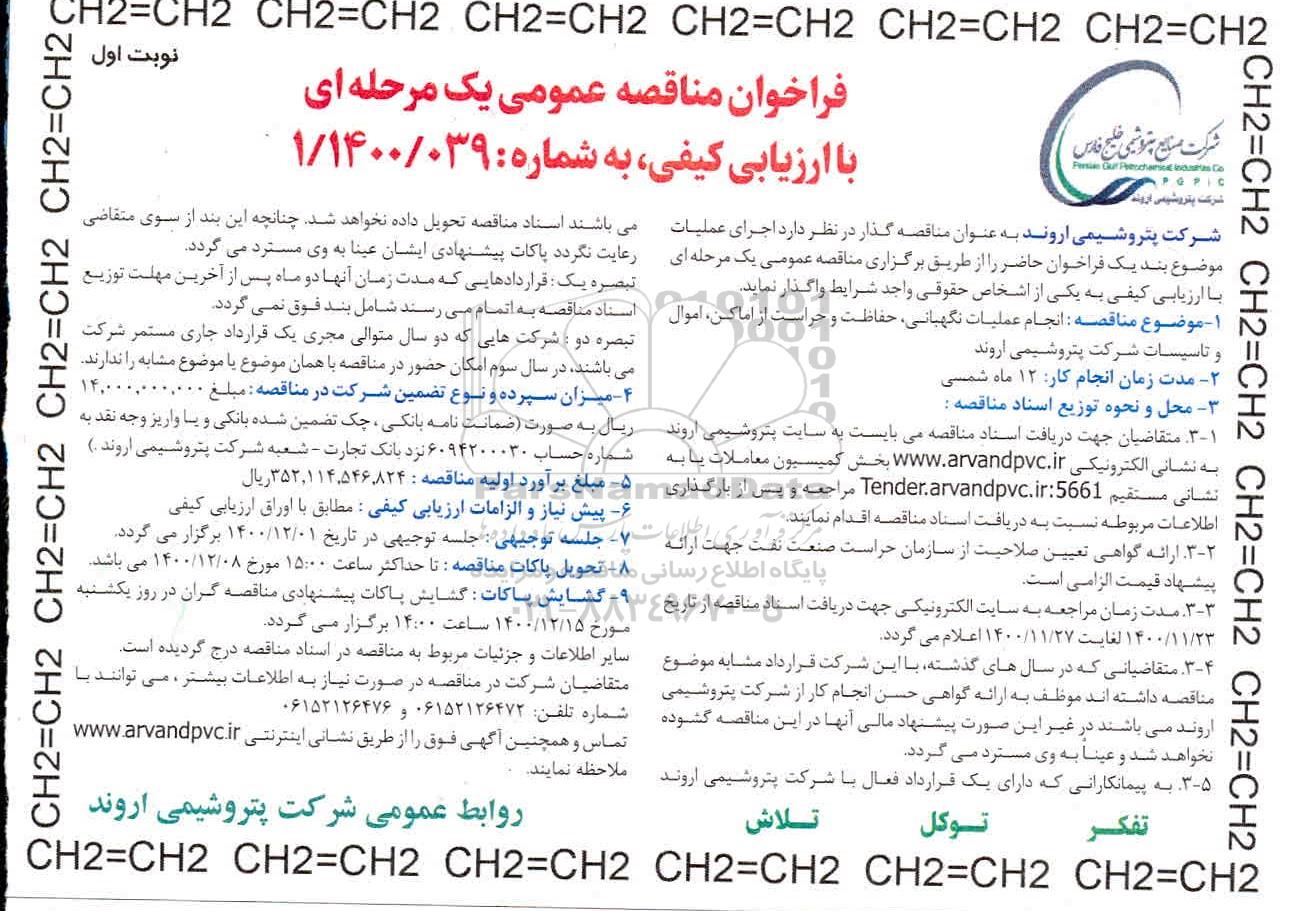 CH2=CH2 CH2=CH2 CH2=CH2 CH2=CH2 CH2=CH2 CH2=CH2
نوبت اول
فراخوان مناقصه عمومی یک مرحله ای
با ارزیابی کیفی، به شماره: ۱/۱۴۰۰/۰۳۹
شرکت صنایع پتروشیمی خلیج فارس
Persian Gulf Petrochemical Industries Co
P G P I C
شرکت پتروشیمی اروند
شرکت پتروشیمی اروند به عنوان مناقصه گذار در نظر دارد اجرای عملیات
موضوع بند یک فراخوان حاضر را از طریق برگزاری مناقصه عمومی یک مرحله ای
با ارزیابی کیفی به یکی از اشخاص حقوقی واجد شرایط واگذار نماید.
۱-موضوع مناقصه: انجام عملیات نگهبانی، حفاظت و حراست از اماکن، اموال
و تاسیسات شرکت پتروشیمی اروند
۲- مدت زمان انجام کار: ۱۲ ماه شمسی
۳- محل و نحوه توزیع اسناد مناقصه :
۳-۱. متقاضیان جهت دریافت اسناد مناقصه می بایست به سایت پتروشیمی اروند
به نشانی الکترونیکی www.arvandpvc.ir بخش کمیسیون معاملات یا به
نشانی مستقیم Tender.arvandpvc.ir:5661 مراجعه و پس از بارگذاری
اطلاعات مربوطه نسبت به دریافت اسناد مناقصه اقدام نمایند.
۳-۲. ارائه گواهی تعیین صلاحیت از سازمان حراست صنعت نفت جهت ارائه
پیشنهاد قیمت الزامی است.
۳-۳. مدت زمان مراجعه به سایت الکترونیکی جهت دریافت اسناد مناقصه از تاریخ
۱۴۰۰/۱۱/۲۳ لغایت ۱۴۰۰/۱۱/۲۷ اعلام می گردد.
۳-۴. متقاضیانی که در سال های گذشته، با این شرکت قرارداد مشابه موضوع
مناقصه داشته اند موظف به ارائه گواهی حسن انجام کار از شرکت پتروشیمی
اروند می باشند در غیر این صورت پیشنهاد مالی آنها در این مناقصه گشوده
نخواهد شد و عیناً به وی مسترد می گردد.
۳-۵. به پیمانکارانی که دارای یک قرارداد فعال با شرکت پتروشیمی اروند
می باشند اسناد مناقصه تحویل داده نخواهد شد. چنانچه این بند از سوی متقاضی
رعایت نگردد پاکات پیشنهادی ایشان عینا به وی مسترد می گردد.
تبصره یک : قراردادهایی که مدت زمان آنها دو ماه پس از آخرین مهلت توزیع
اسناد مناقصه به اتمام می رسند شامل بند فوق نمی گردد.
تبصره دو : شرکت هایی که دو سال متوالی مجری یک قرارداد جاری مستمر شرکت
می باشند، در سال سوم امکان حضور در مناقصه با همان موضوع یا موضوع مشابه را ندارند.
۴-میزان سپرده و نوع تضمین شرکت در مناقصه : مبلغ ۱۴,۰۰۰,۰۰۰,۰۰۰
ریال به صورت (ضمانت نامه بانکی ، چک تضمین شده بانکی و یا واریز وجه نقد به
شماره حساب ۶۰۹۴۲۰۰۰۳۰ نزد بانک تجارت - شعبه شرکت پتروشیمی اروند .)
۵- مبلغ برآورد اولیه مناقصه : ۳۵۲,۱۱۴,۵۴۶,۸۲۴ریال
۶- پیش نیاز و الزامات ارزیابی کیفی : مطابق با اوراق ارزیابی کیفی
۷- جلسه توجیهی : جلسه توجیهی در تاریخ ۱۴۰۰/۱۲/۰۱ برگزار می گردد.
۸- تحویل پاکات مناقصه : تا حداکثر ساعت ۱۵:۰۰ مورخ ۱۴۰۰/۱۲/۰۸ می باشد.
۹- گشایش پاکات : گشایش پاکات پیشنهادی مناقصه گران در روز یکشنبه
مورخ ۱۴۰۰/۱۲/۱۵ ساعت ۱۴:۰۰ برگزار می گردد.
سایر اطلاعات و جزئیات مربوط به مناقصه در اسناد مناقصه درج گردیده است.
متقاضیان شرکت در مناقصه در صورت نیاز به اطلاعات بیشتر ، می توانند با
شماره تلفن: ۰۶۱۵۲۱۲۶۴۷۲ و ۰۶۱۵۲۱۲۶۴۷۶
تماس و همچنین آگهی فوق را از طریق نشانی اینترنتی www.arvandpvc.ir
ملاحظه نمایند.
تفکر توکل تلاش
روابط عمومی شرکت پتروشیمی اروند
ParsNamadData
پایگاه اطلاع رسانی مناقصه و مزایده
۰۲۱-۸۸۳۴۹۶۷۰-۵
CH2=CH2 CH2=CH2 CH2=CH2 CH2=CH2
CH2=CH2 CH2=CH2 CH2=CH2 CH2=CH2
CH2=CH2 CH2=CH2 CH2=CH2 CH2=CH2 CH2=CH2 CH2=CH2